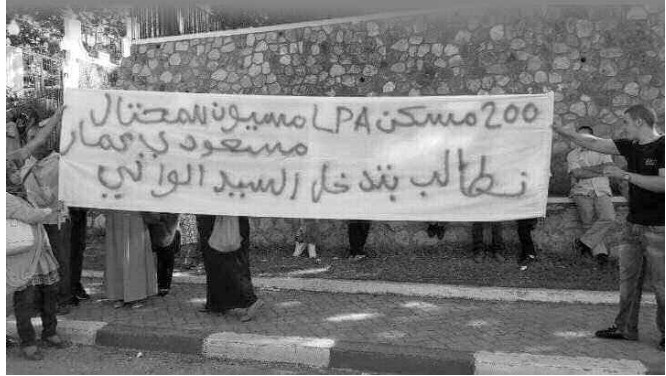 200 مسكن LPA مسيون للمحتال
مسعودي عمار
نطالب بتدخل السيد الوالي